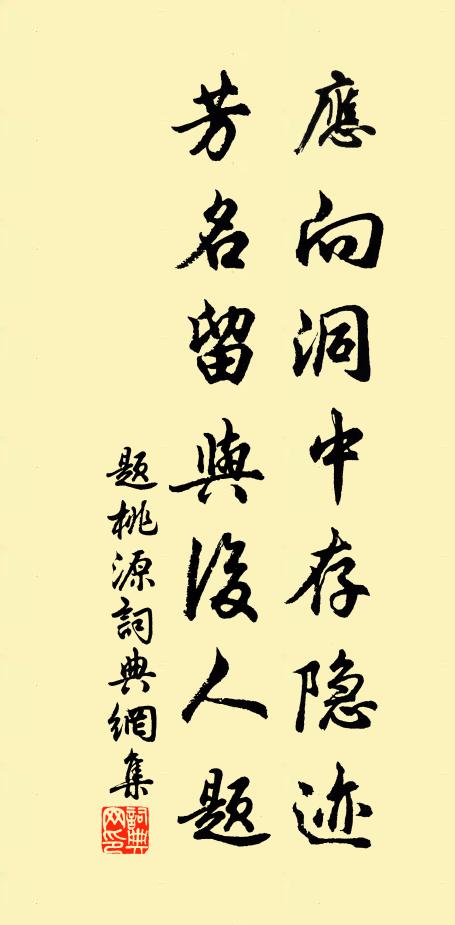 應向洞中存隐迹
芳名留與後人题
题桃源詞典網集
詞典网印